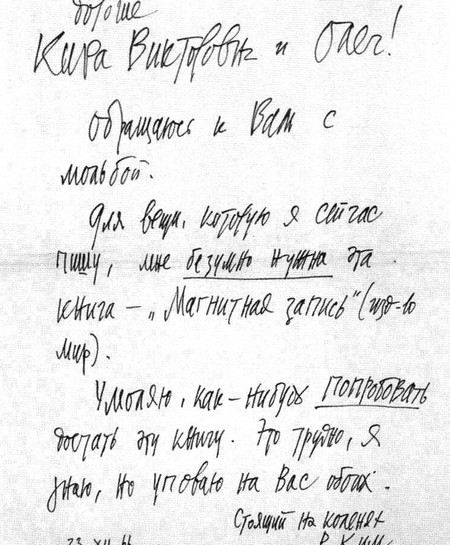 дорогие
Кира Викторовна и Олег!
обращаюсь к Вам с
мольбой.
Для вещи, которую я сейчас
пишу, мне безумно нужна эта
книга – „Магнитная запись" (изд-во
Мир).
Умоляю, как-нибудь ПОПРОБОВАТЬ
достать эту книгу. Это трудно, я
знаю, но уповаю на Вас обоих.
Стоящий на коленях
23 XII 66 Р. Ким